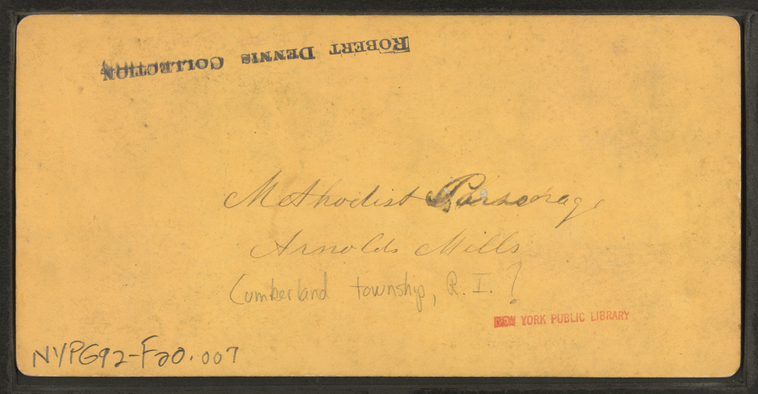 ROBERT DENNIS COLLECTION
Methodist Parsonage
Arnolds Mills
Cumberland township, R.I.?
NEW YORK PUBLIC LIBRARY
NYPG92-F20.007